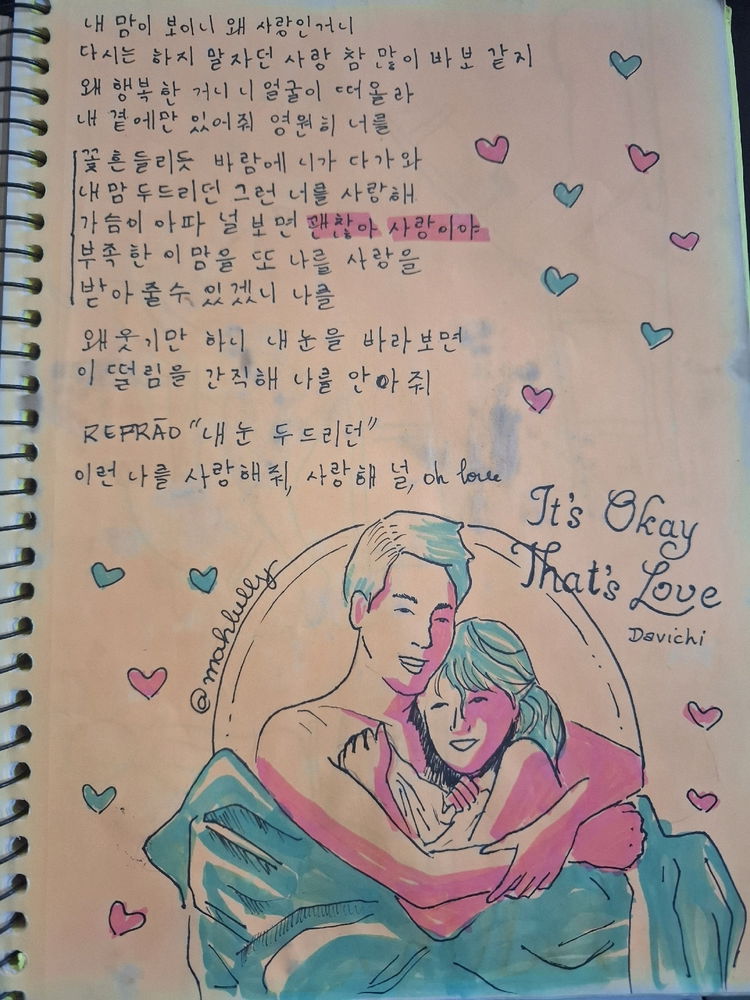 내 맘이 보이니 왜 사랑인거니
다시는 하지 말자던 사랑 참 많이 바보 같지
왜 행복한 거니 니 얼굴이 떠올라
내 곁에만 있어줘 영원히 너를
꽃 흔들리듯 바람에 니가 다가와
내 맘 두드리던 그런 너를 사랑해
가슴이 아파 널 보면 괜찮아 사랑이야
부족한 이 맘을 또 나를 사랑을
받아 줄수 있겠니 나를
왜 웃기만 하니 내 눈을 바라보면
이 떨림을 간직해 나를 안아줘
REFRÃO "내 눈 두드리던"
이런 나를 사랑해줘, 사랑해 널, oh love
It's Okay
That's Love
Davichi
@mahlully